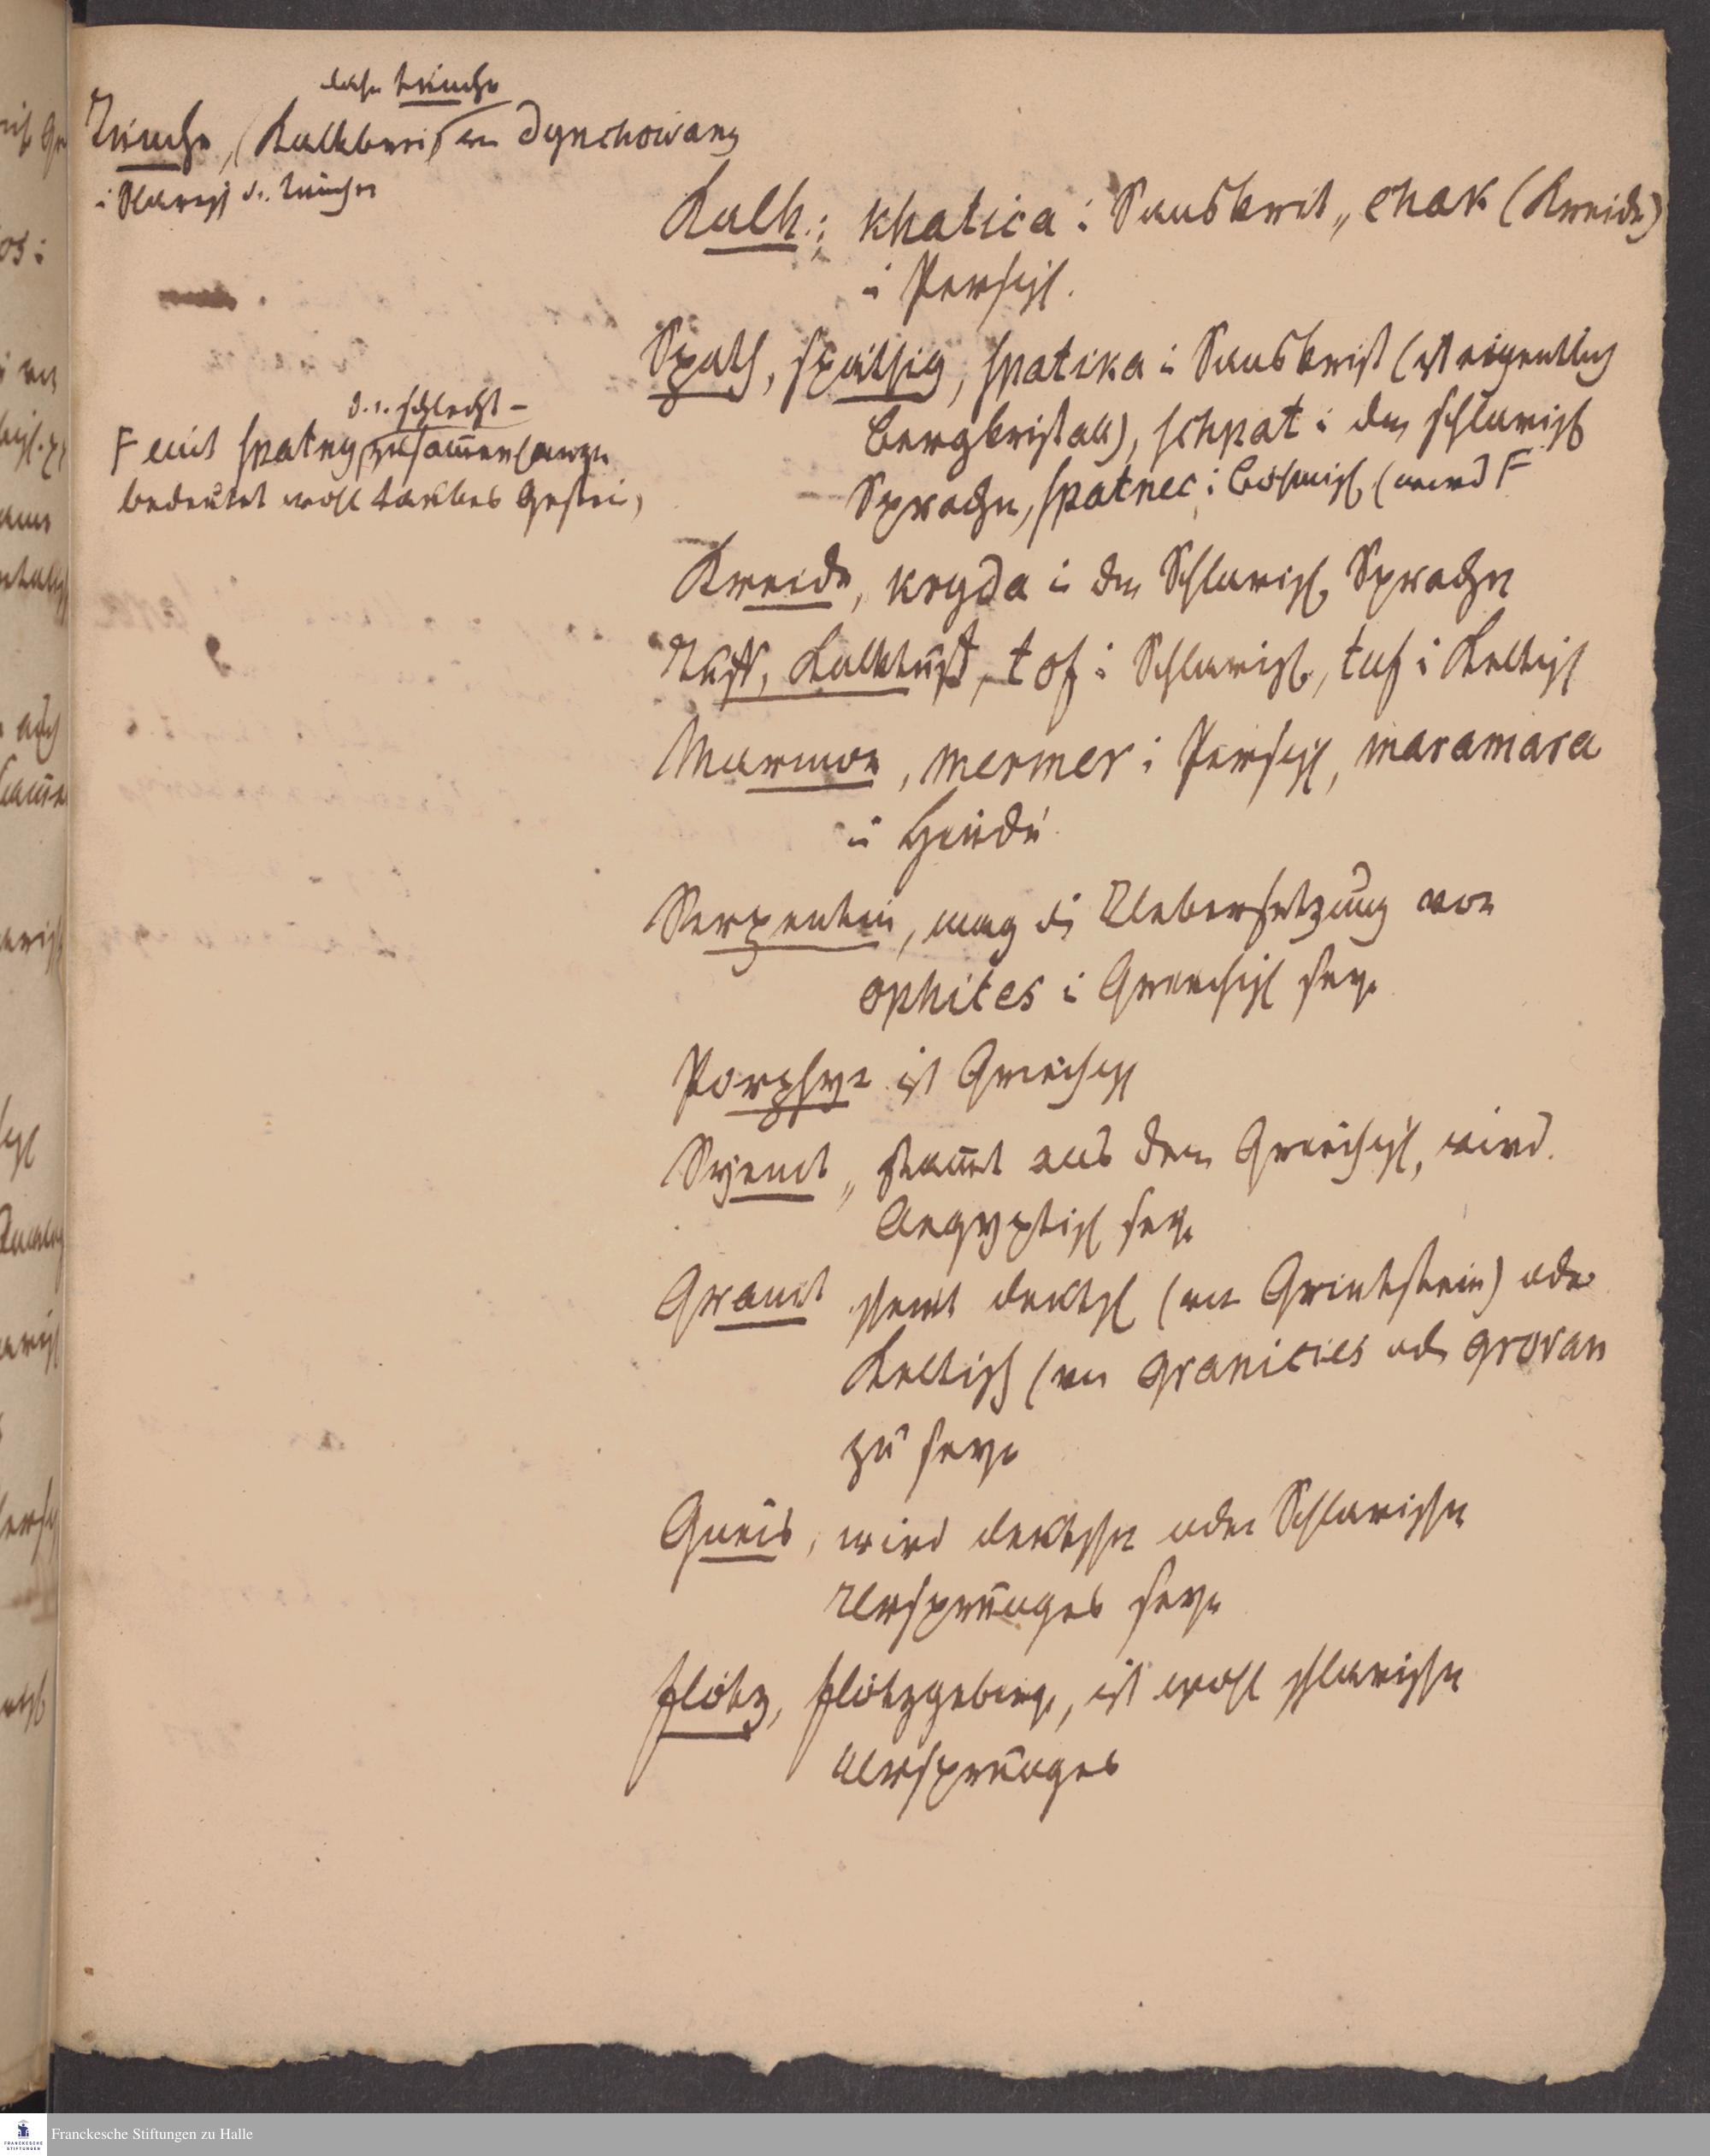 daher Tünche
Tünche, (Kalkbrei) von Dynchowany
i Slavisch d. i. Tünchen
Kalk.; khatica i Sanskrit, chak (Kreide)
i Persisch.
Spath, späthig, spatika i Sanskrist (ist eigentlich
Bergkristall), schpat i den schlavisch
Sprachen, spatnec i Böhmisch (wird F
d. i. schlecht -
F mit spatny, zusammenhangen
bedeutet wohl taubes Gestein)
Kreide, kryda i den Schlavisch Sprachen
Tuff, Kalktuff, tof i Schlavisch, tuf i Keltisch
Marmor, mermer i Persisch, maramara
i Hindu
Serpentin, mag die Uebersetzung von
ophites i Griechisch seyn
Porphyr ist Griechisch
Syenit, stam̄t aus dem Griechisch, wird
Aegyptisch seyn
Granit scheint deutsch (von Grintstein) oder
Keltisch (von granities od grovan
zu seyn
Gneis, wird deutschen oder Schlavischen
Ursprunges seyn
Flötz, Flötzgebirge, ist wohl schlavischen
Ursprunges
Franckesche Stiftungen zu Halle